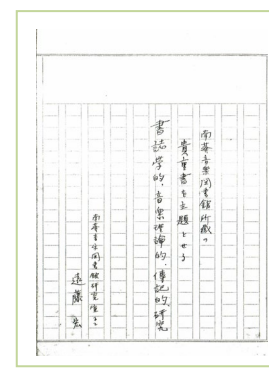 南葵音楽図書館所蔵の
貴重書を主題とせる
書誌学的、音楽理論的、傳記的、研究
南葵音楽図書館研究室にて
遠藤宏